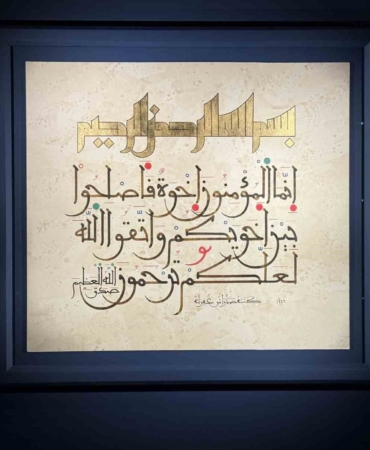 بسم الله الرحمن الرحيم
إنما المؤمنون إخوة فأصلحوا
بين أخويكم واتقوا الله
لعلكم ترحمون صدق الله العظيم